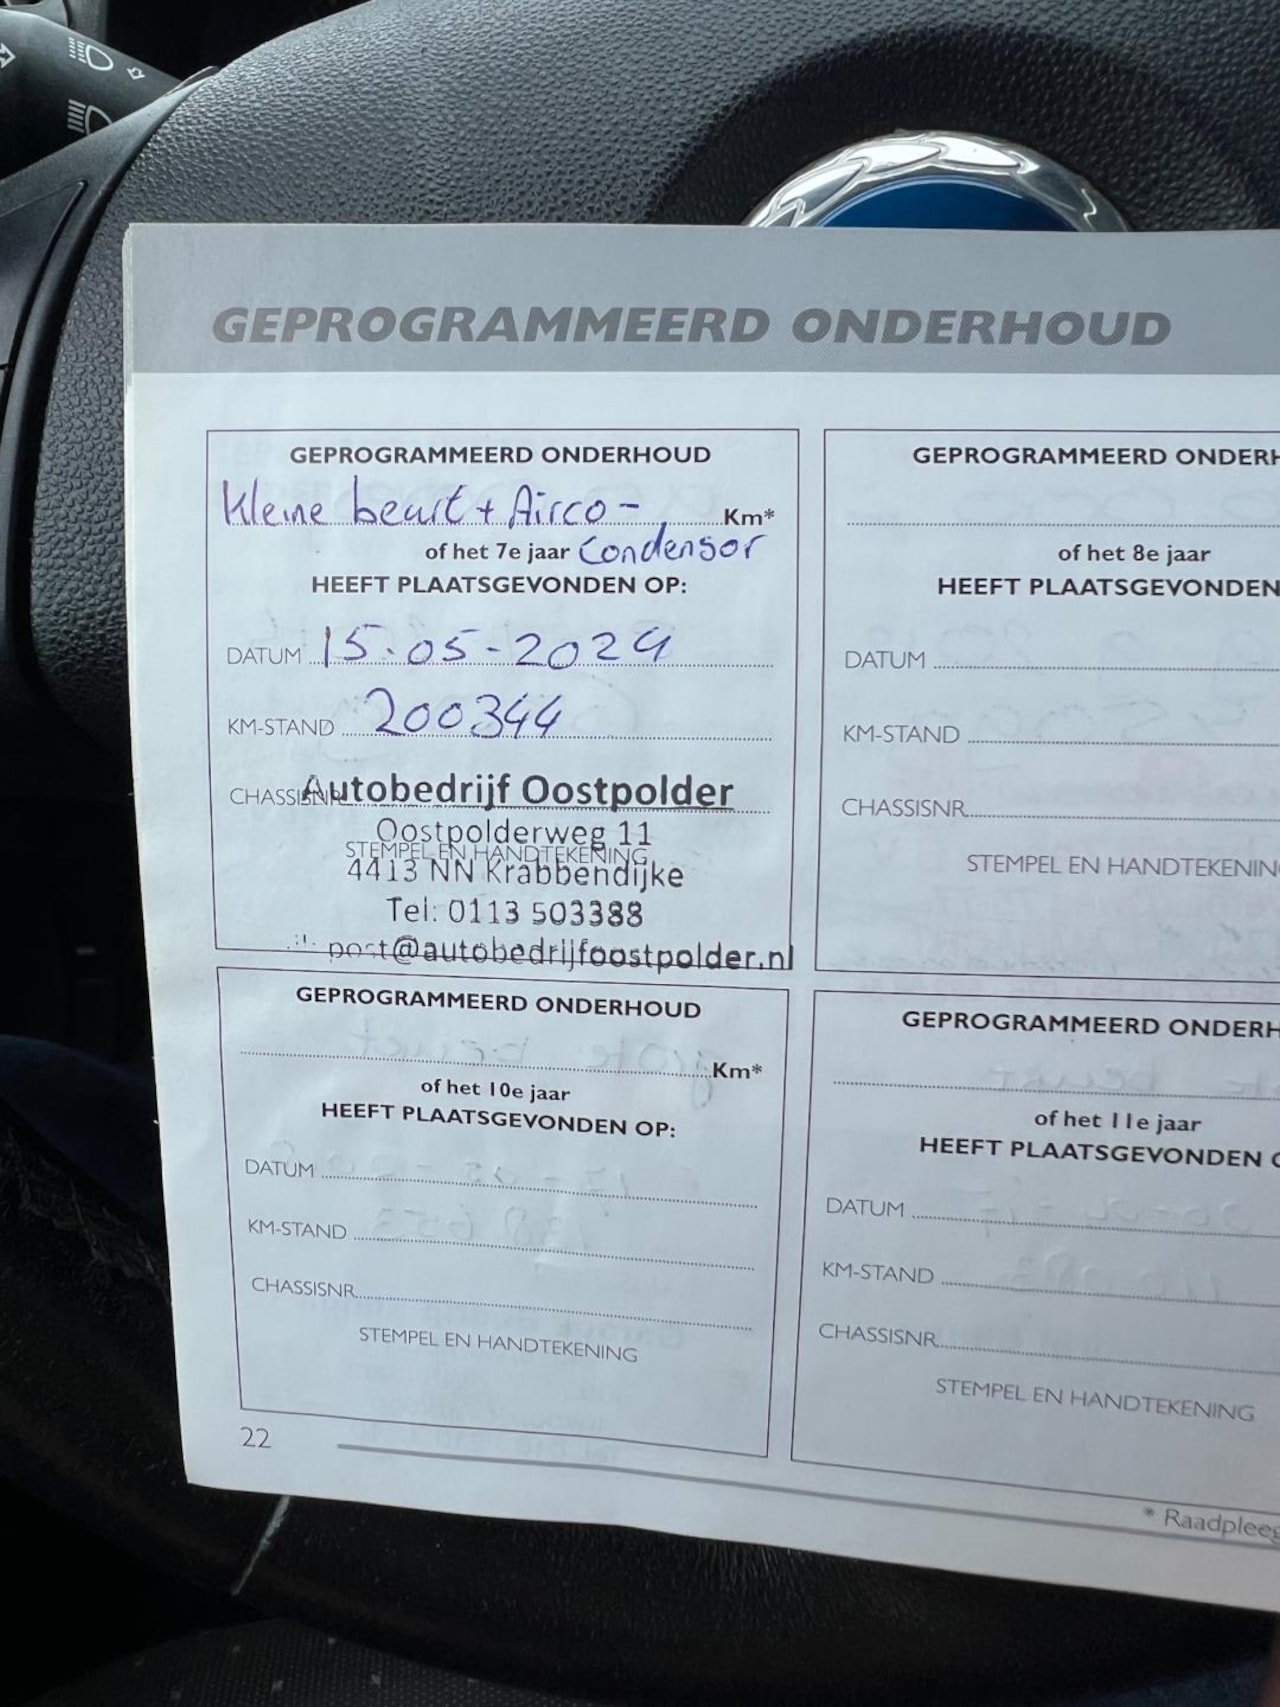 GEPROGRAMMEERD ONDERHOUD
GEPROGRAMMEERD ONDERHOUD
Kleine beurt + Airco - Km*
of het 7e jaar Condensor
HEEFT PLAATSGEVONDEN OP:
DATUM 15-05-2024
KM-STAND 200344
CHASSISNR. Autobedrijf Oostpolder
Oostpolderweg 11
STEMPEL EN HANDTEKENING
4413 NN Krabbendijke
Tel: 0113 503388
post@autobedrijfoostpolder.nl
GEPROGRAMMEERD ONDERH
of het 8e jaar
HEEFT PLAATSGEVONDEN
DATUM
KM-STAND
CHASSISNR.
STEMPEL EN HANDTEKENING
GEPROGRAMMEERD ONDERHOUD
Km*
of het 10e jaar
HEEFT PLAATSGEVONDEN OP:
DATUM
KM-STAND
CHASSISNR.
STEMPEL EN HANDTEKENING
GEPROGRAMMEERD ONDERH
of het 11e jaar
HEEFT PLAATSGEVONDEN O
DATUM
KM-STAND
CHASSISNR.
STEMPEL EN HANDTEKENING
22
* Raadpleeg